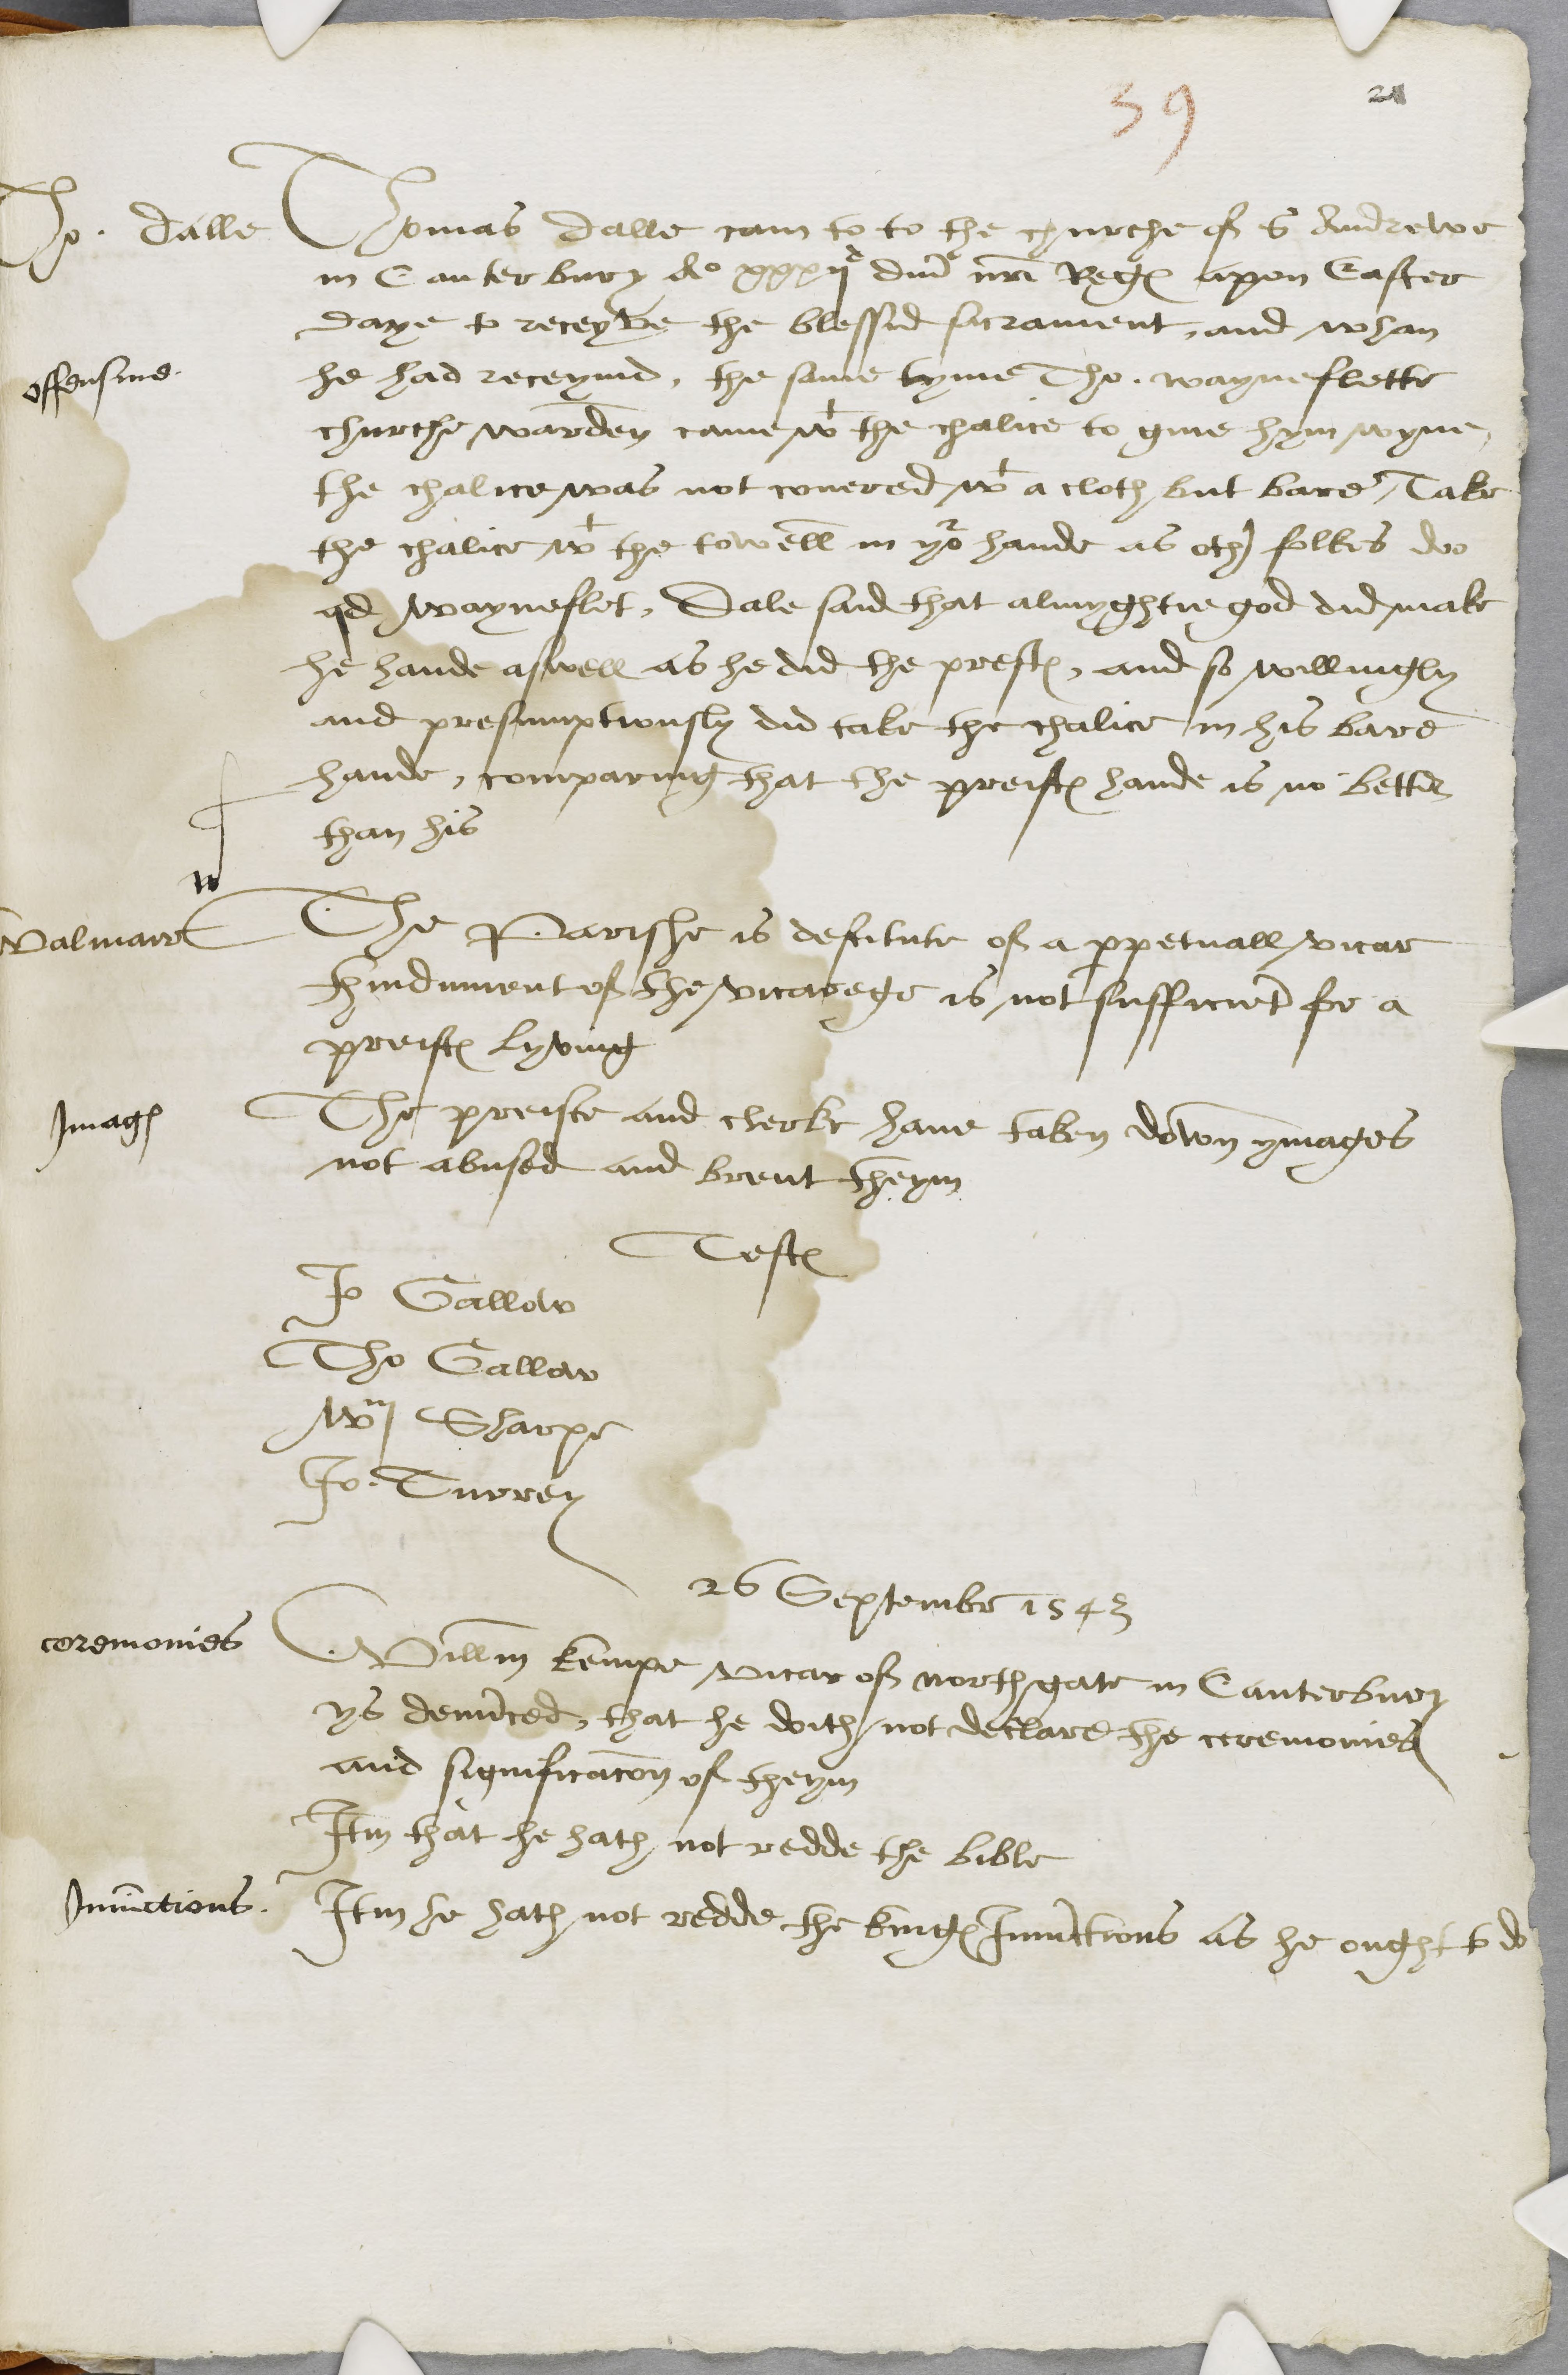 39
21
Tho. Dalle
Thomas Dalle cam to to the churche of S Andrewe
in Canterbury Ao xxxij dni nri Regs apon Easter
daye to receyve the blessid sacrament, and whan
offensive.
he had receyvid, the same tyme Tho. wayneflette
churche warden came wt the chalice to give hym wyne,
the chalice was not covered wt a cloth but bare, Take
the chalice wt the towell in yor hande as other folkes doo
qd Wayneflet, Dale said that almyghtie god did make
he hande aswell as he did the prests, and so willingly
and presumptiously did take the chalice in his bare
hande, comparing that the preists hande is no better
than his
Walmaire
The Parishe is destitute of a perpetuall vicar
thindument of the vicarege is not sufficiet for a
preists lyving
Images
The preiste and clerke have taken down ymages
not abused and brent theym
Testes
Jo Gallow
Tho Gallow
Wm Sharpe
Jo. Turrey
26 Septembr 1543
ceremonies
Willm kempe vicar of northgate in Canterbury
ys denuced, that he doith not declare the ceremonies
and significacon of theym
Itm that he hath not redde the bible
Iniuctions.
Itm he hath not redde the kings Iniuctions as he ought to do